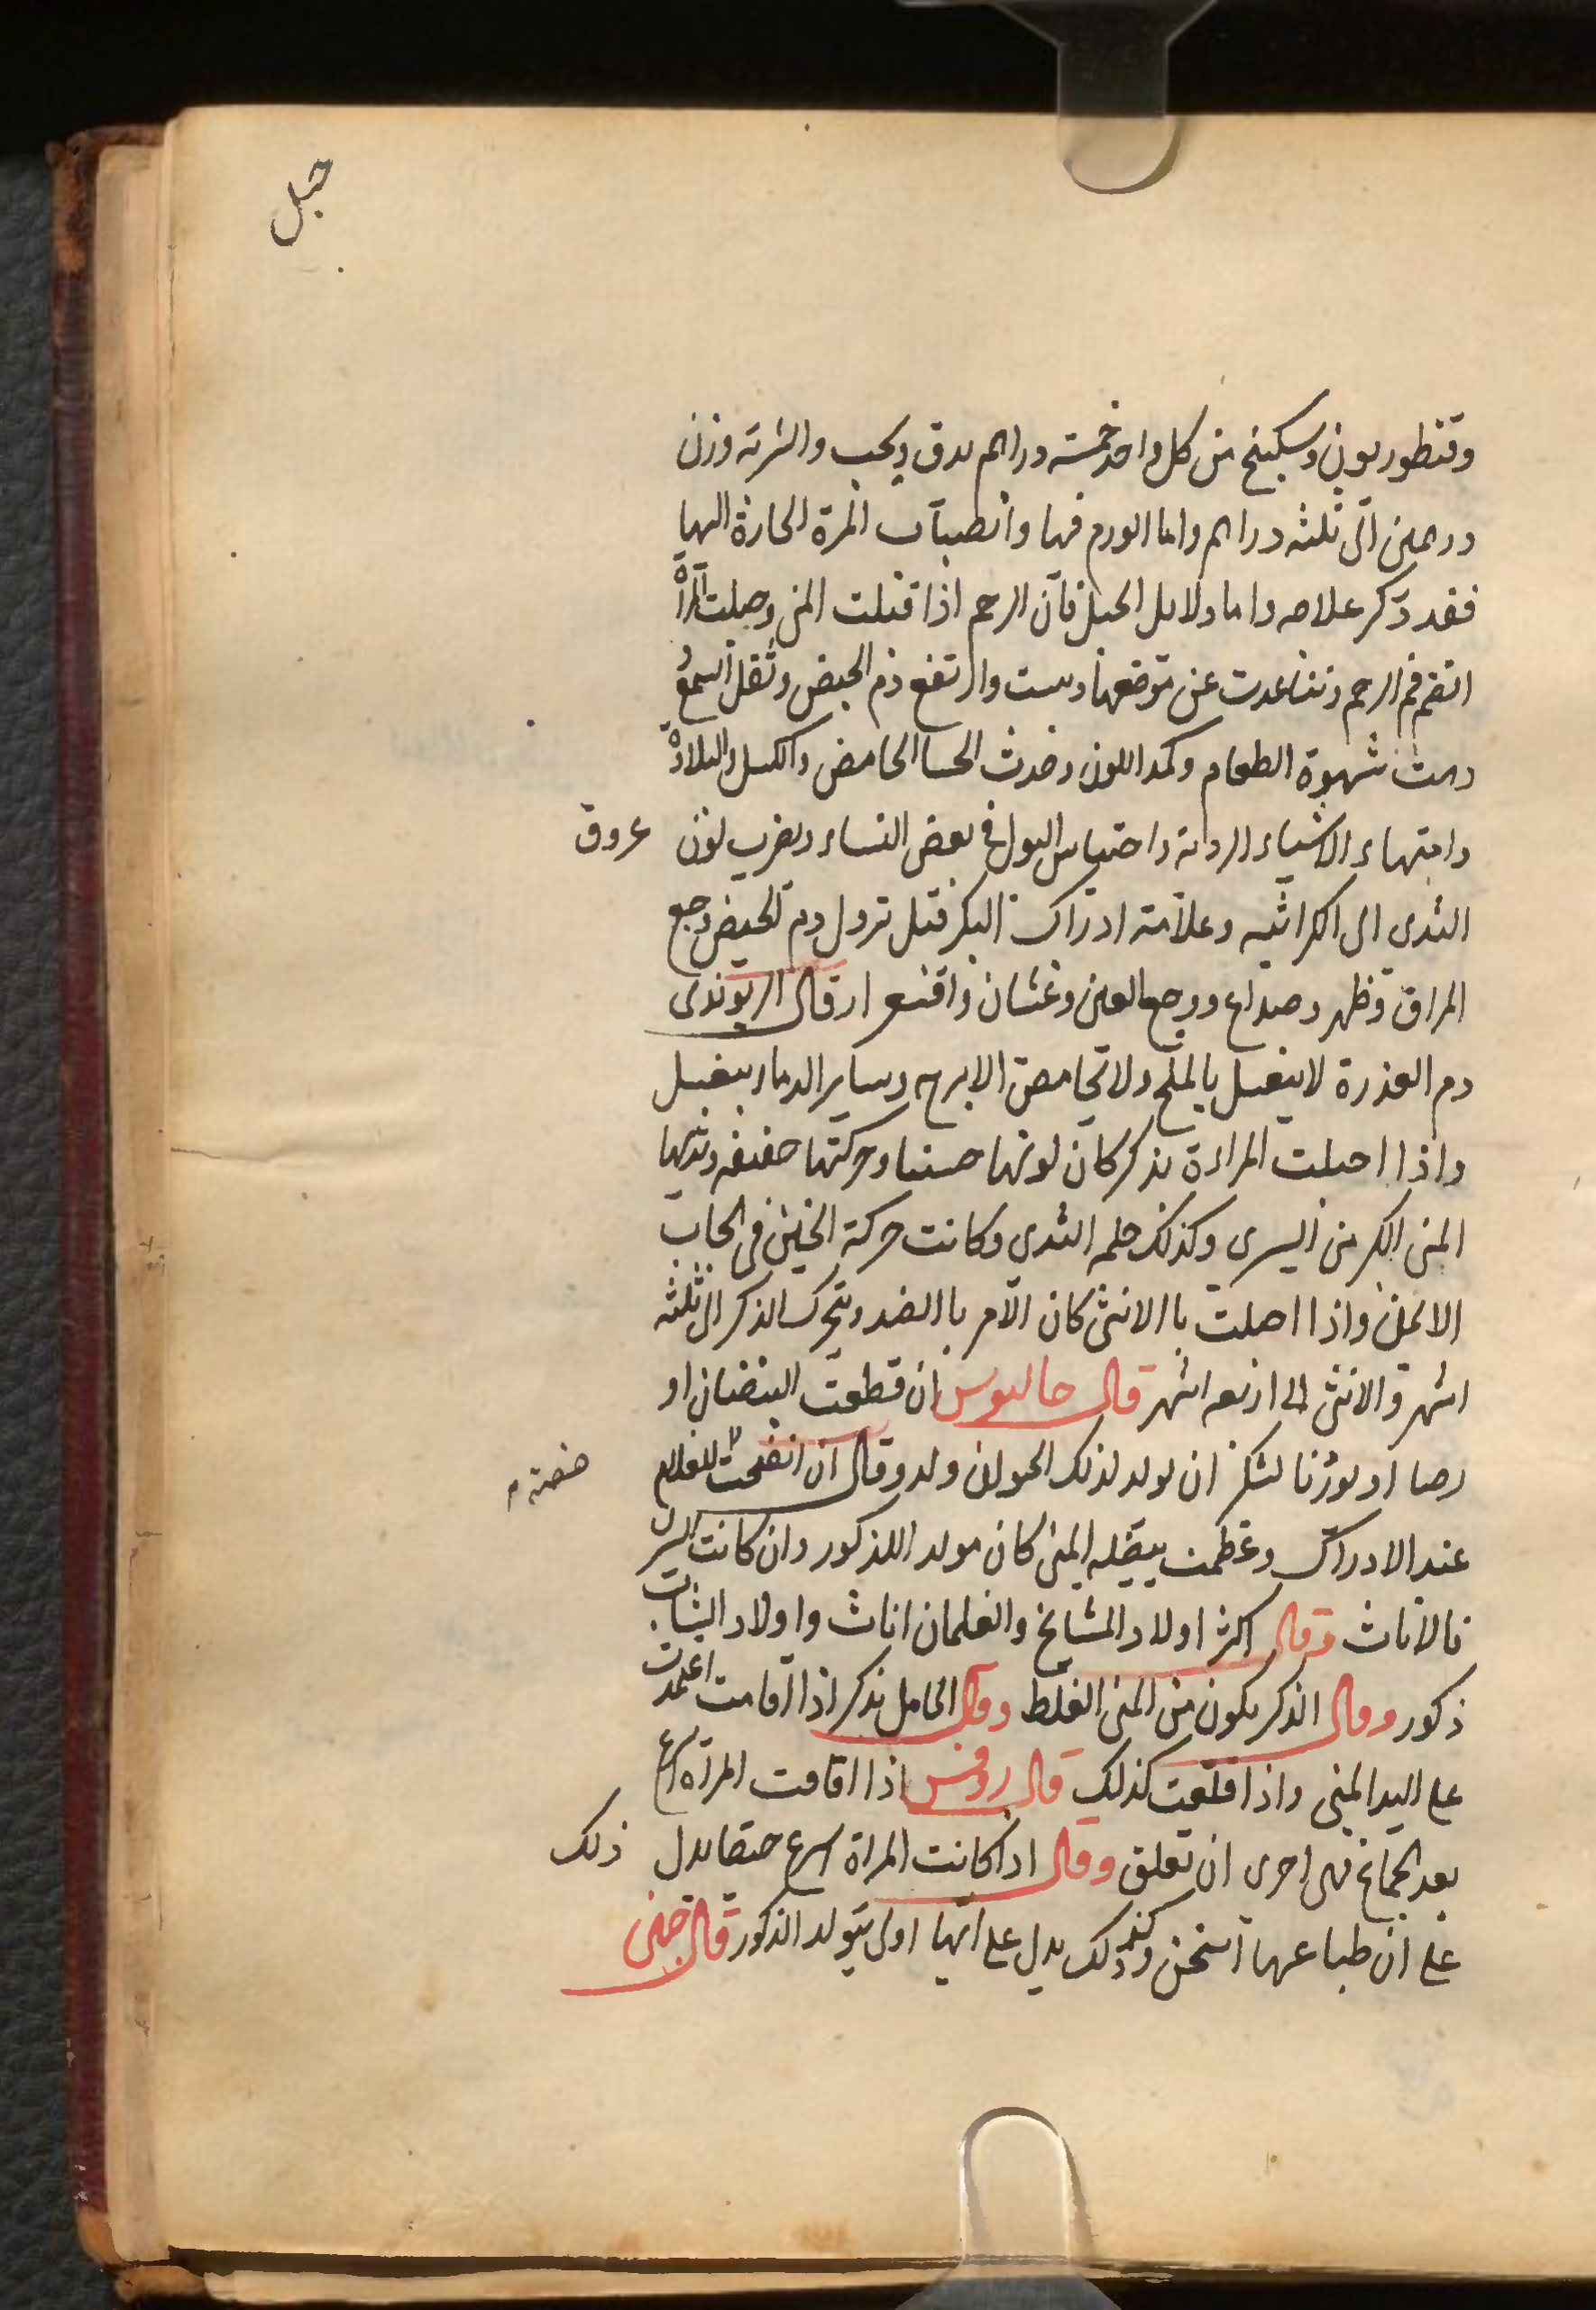 حبل
وقنطوريون وسكبينج من كل واحد خمسة دراهم يدق ويحبب والشربة وزن
درهمين الى ثلثة دراهم واما الورم فيها وانطباب المرة الحارة اليها
فقد ذكر علاجه واما دلايل الحبل فان الرحم اذا قبلت المنى وحبلت المراة
انضم فم الرحم وتباعدت عن موضعها ويبست وارتفع دم الحيض وثقل السمع
وهت شهوة الطعام وكمد اللون وحدث الجسا الحامض والكسل والبلادة
واشتهاء الاشياء الردية واحتباس البول فى بعض النساء ويضرب لون عروق
الثدى الى الكراثيه وعلامة ادراك البكر قبل نزول دم الحيض وجع
المراق وظهر وصداع ووجع العين وغثيان واقشعرار قال الريوندى
دم العذرة لا ينغسل بالملح ولا بحامض الاترج وساير الدماء ينغسل
واذا احبلت المراءة بذكر كان لونها حسنا وحركتها خفيفه وثديها
اليمنى اكبر من اليسرى وكذلك حلمه الثدى وكانت حركة الجنين فى الجانب
الايمن واذا احبلت باالانثى كان الامر باالضد ويتحرك الذكر الى ثلثه
اشهر والانثى الى اربعه اشهر قال جالينوس ان قطعت البيضتان او
رضا او بوزنا لشكر ان يولد لذلك الحيوان ولد وقال ان انتفخت للغلام
خصية
عند الادراك وعظمت بيضه اليمنى كان مولد اللذكور وان كانت اليسرى
فالاناث وقال اكثر اولاد المشايخ والغلمان اناث واولاد الشباب
ذكور وقال الذكر يكون من المنى الغليظ وقال الحامل بذكر اذا اقامت اعتمدت
على اليد اليمنى واذا قعدت كذلك قال روفس اذا اقامت المراة
بعد الجماع فهى احرى ان تعلق وقال اذا كانت المراة اسرع حيضا يدل ذلك
على ان طباعها اسخن وكذلك يدل على انها اولى بتولد الذكور قال حنين